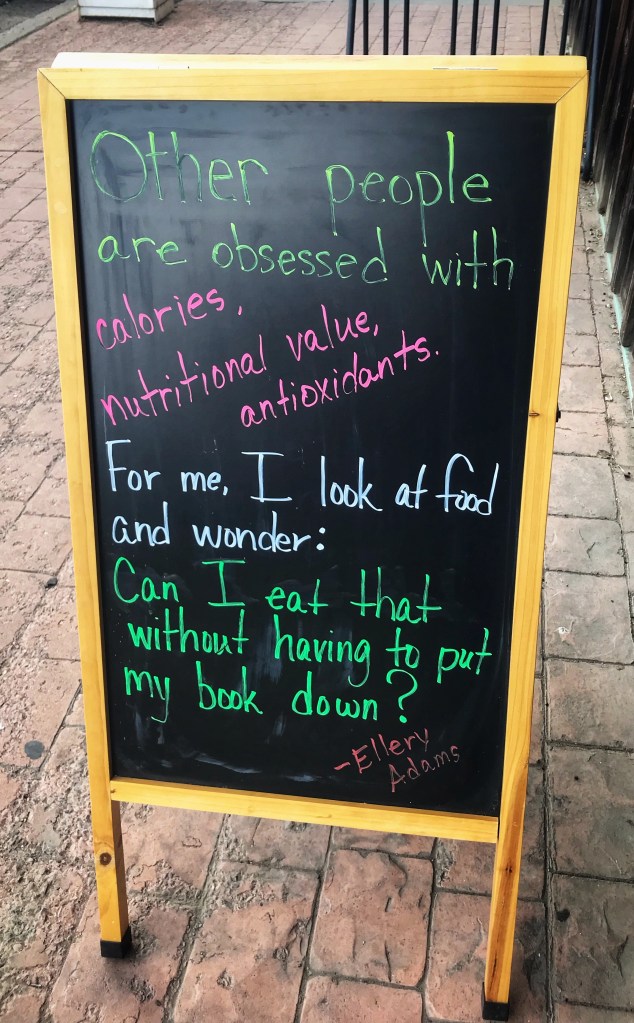 Other people
are obsessed with
calories,
nutritional value,
antioxidants.
For me, I look at food
and wonder:
Can I eat that
without having to put
my book down?
-Ellery
Adams